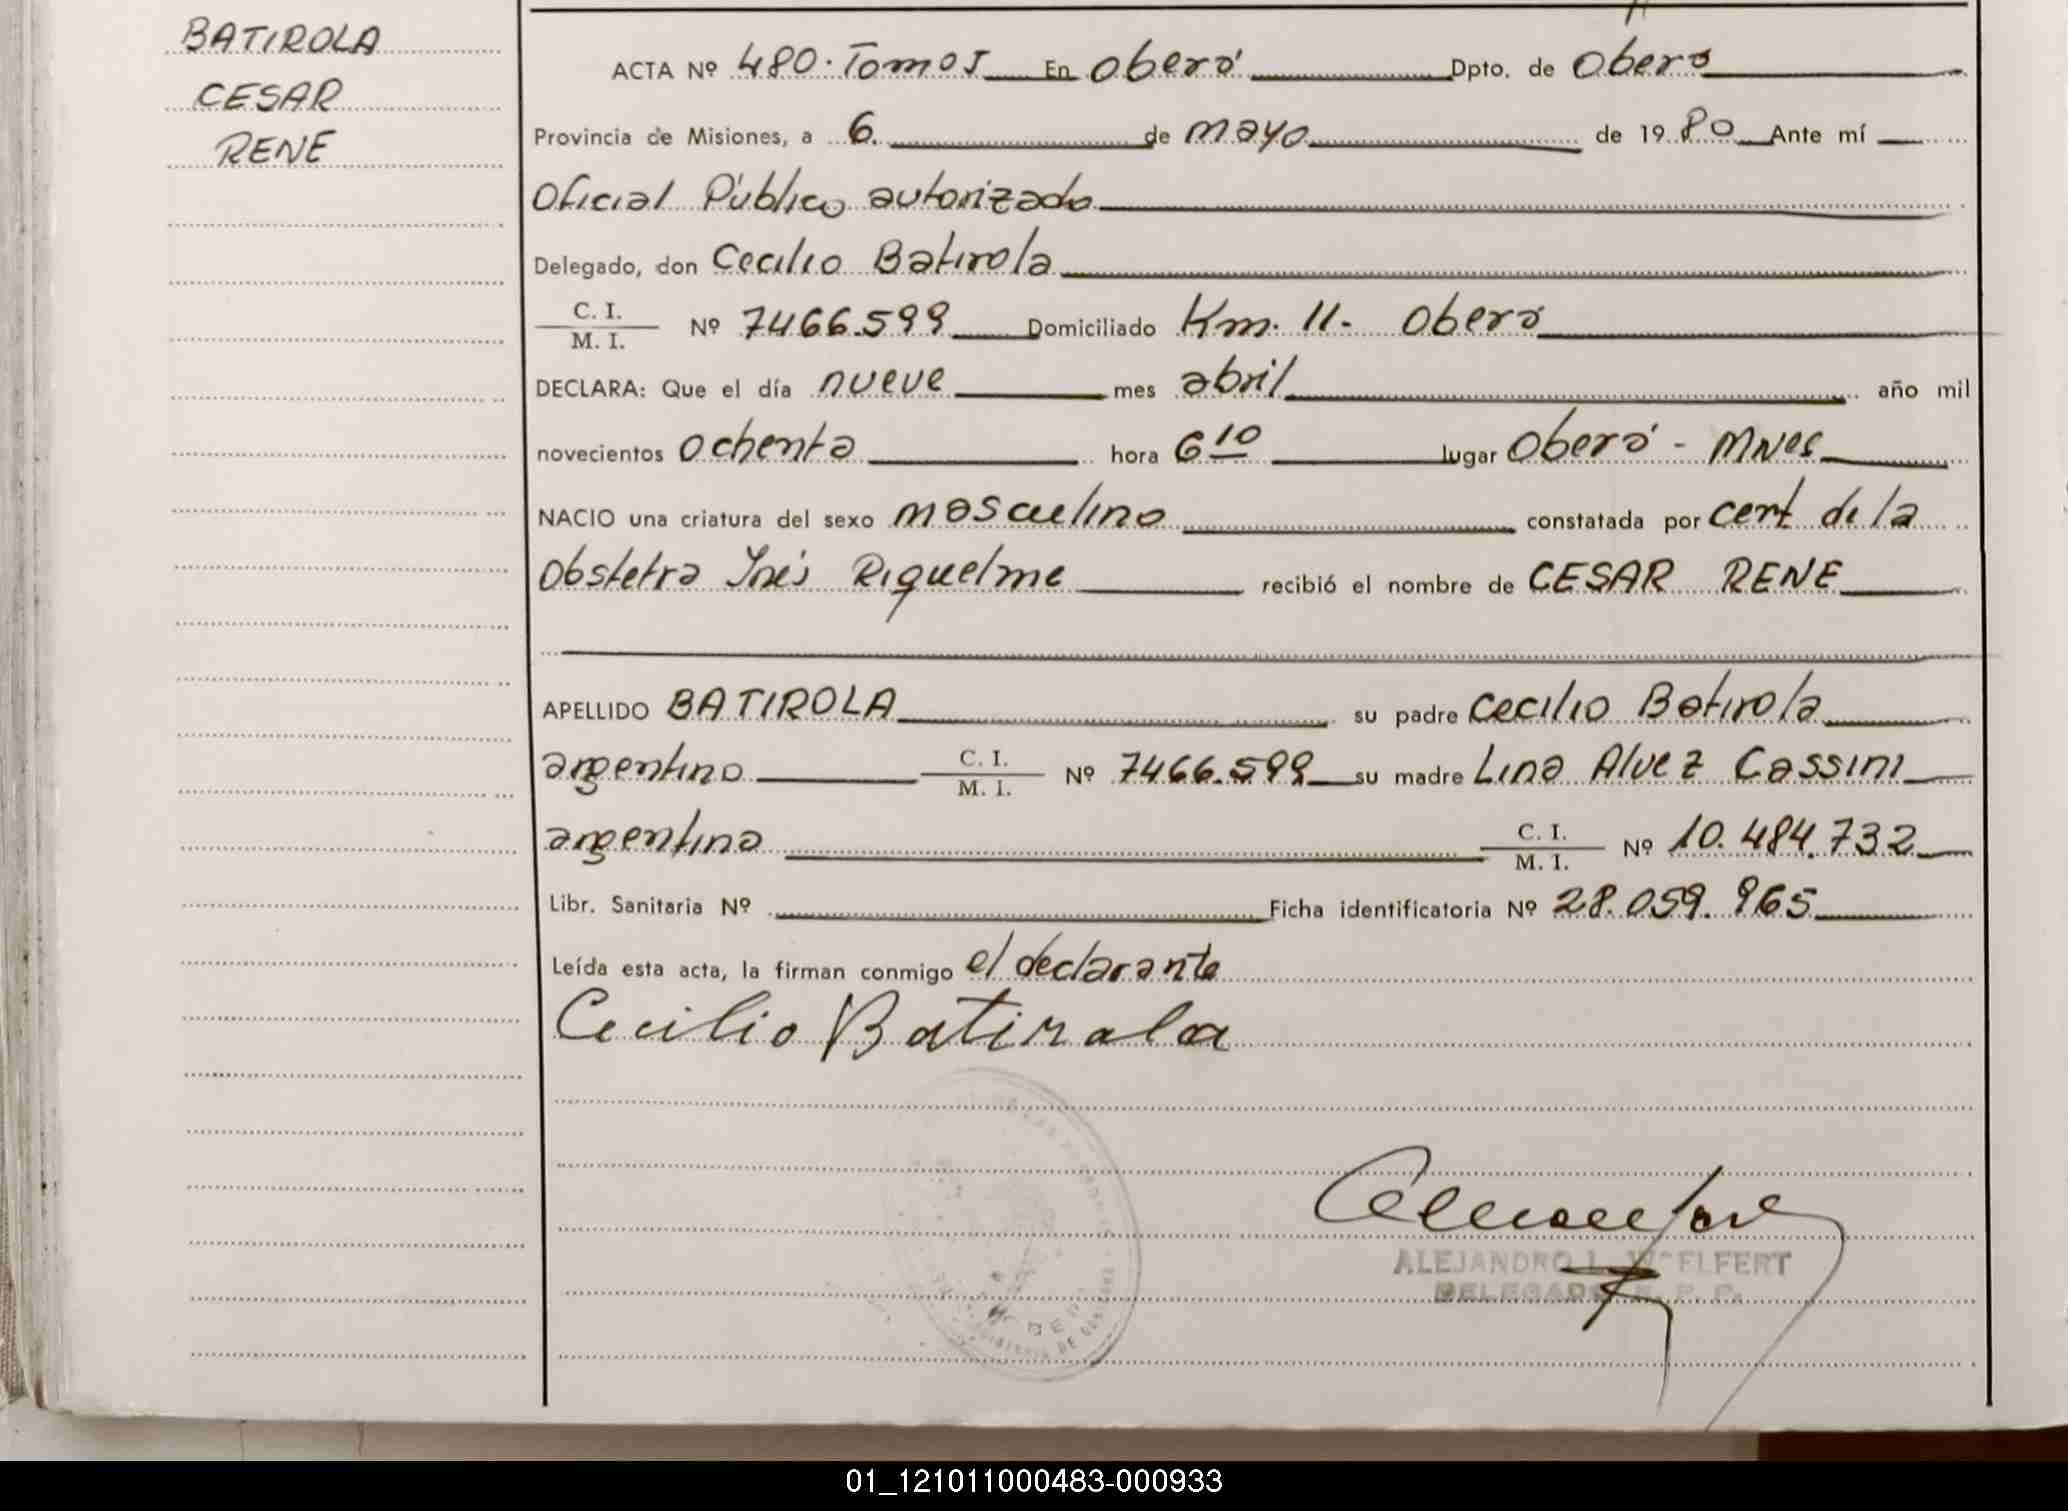 BATIROLA
CESAR
RENE
ACTA Nº 480. Tomo I En Oberá Dpto. de Oberá
Provincia de Misiones, a 6. de mayo de 1980 Ante mí
Oficial Público autorizado
Delegado, don Cecilio Batirola
C. I.
M. I. Nº 7466.599 Domiciliado Km. 11. Oberá
DECLARA: Que el día nueve mes abril año mil
novecientos ochenta hora 6 10 lugar Oberá - Mnes
NACIO una criatura del sexo masculino constatada por cert de la
Obstetra Inés Riquelme recibió el nombre de CESAR RENE
APELLIDO BATIROLA su padre Cecilio Batirola
argentino C. I. M. I. Nº 7466.599 su madre Lina Alvez Cassini
argentina C. I. M. I. Nº 10.484.732
Libr. Sanitaria Nº Ficha identificatoria Nº 28.059.965
Leída esta acta, la firman conmigo el declarante
Cecilio Batirola
ALEJANDRO L. WOELFERT
DELEGADO R. P. P.
01_121011000483-000933